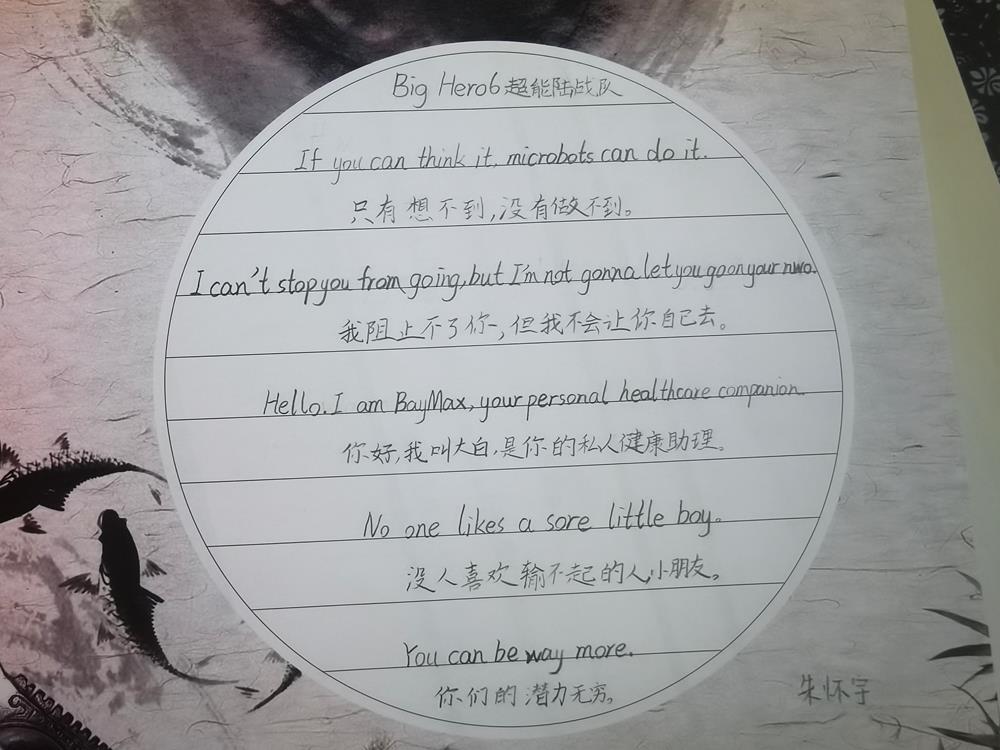 Big Hero6超能陆战队
If you can think it, microbots can do it.
只有想不到,没有做不到。
I can't stop you from going, but I'm not gonna let you go on your nwo.
我阻止不了你,但我不会让你自己去。
Hello. I am BayMax, your personal healthcare companion.
你好,我叫大白,是你的私人健康助理。
No one likes a sore little boy.
没人喜欢输不起的人,小朋友。
You can be way more.
你们的潜力无穷。
朱怀宇